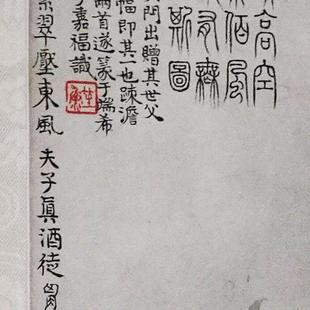 高空
風
無
斯圖
門出贈其世父
幅即其一也疎澹
兩首遂篆于瑞希
嘉福識
翠壓東風 夫子真酒徒 胸